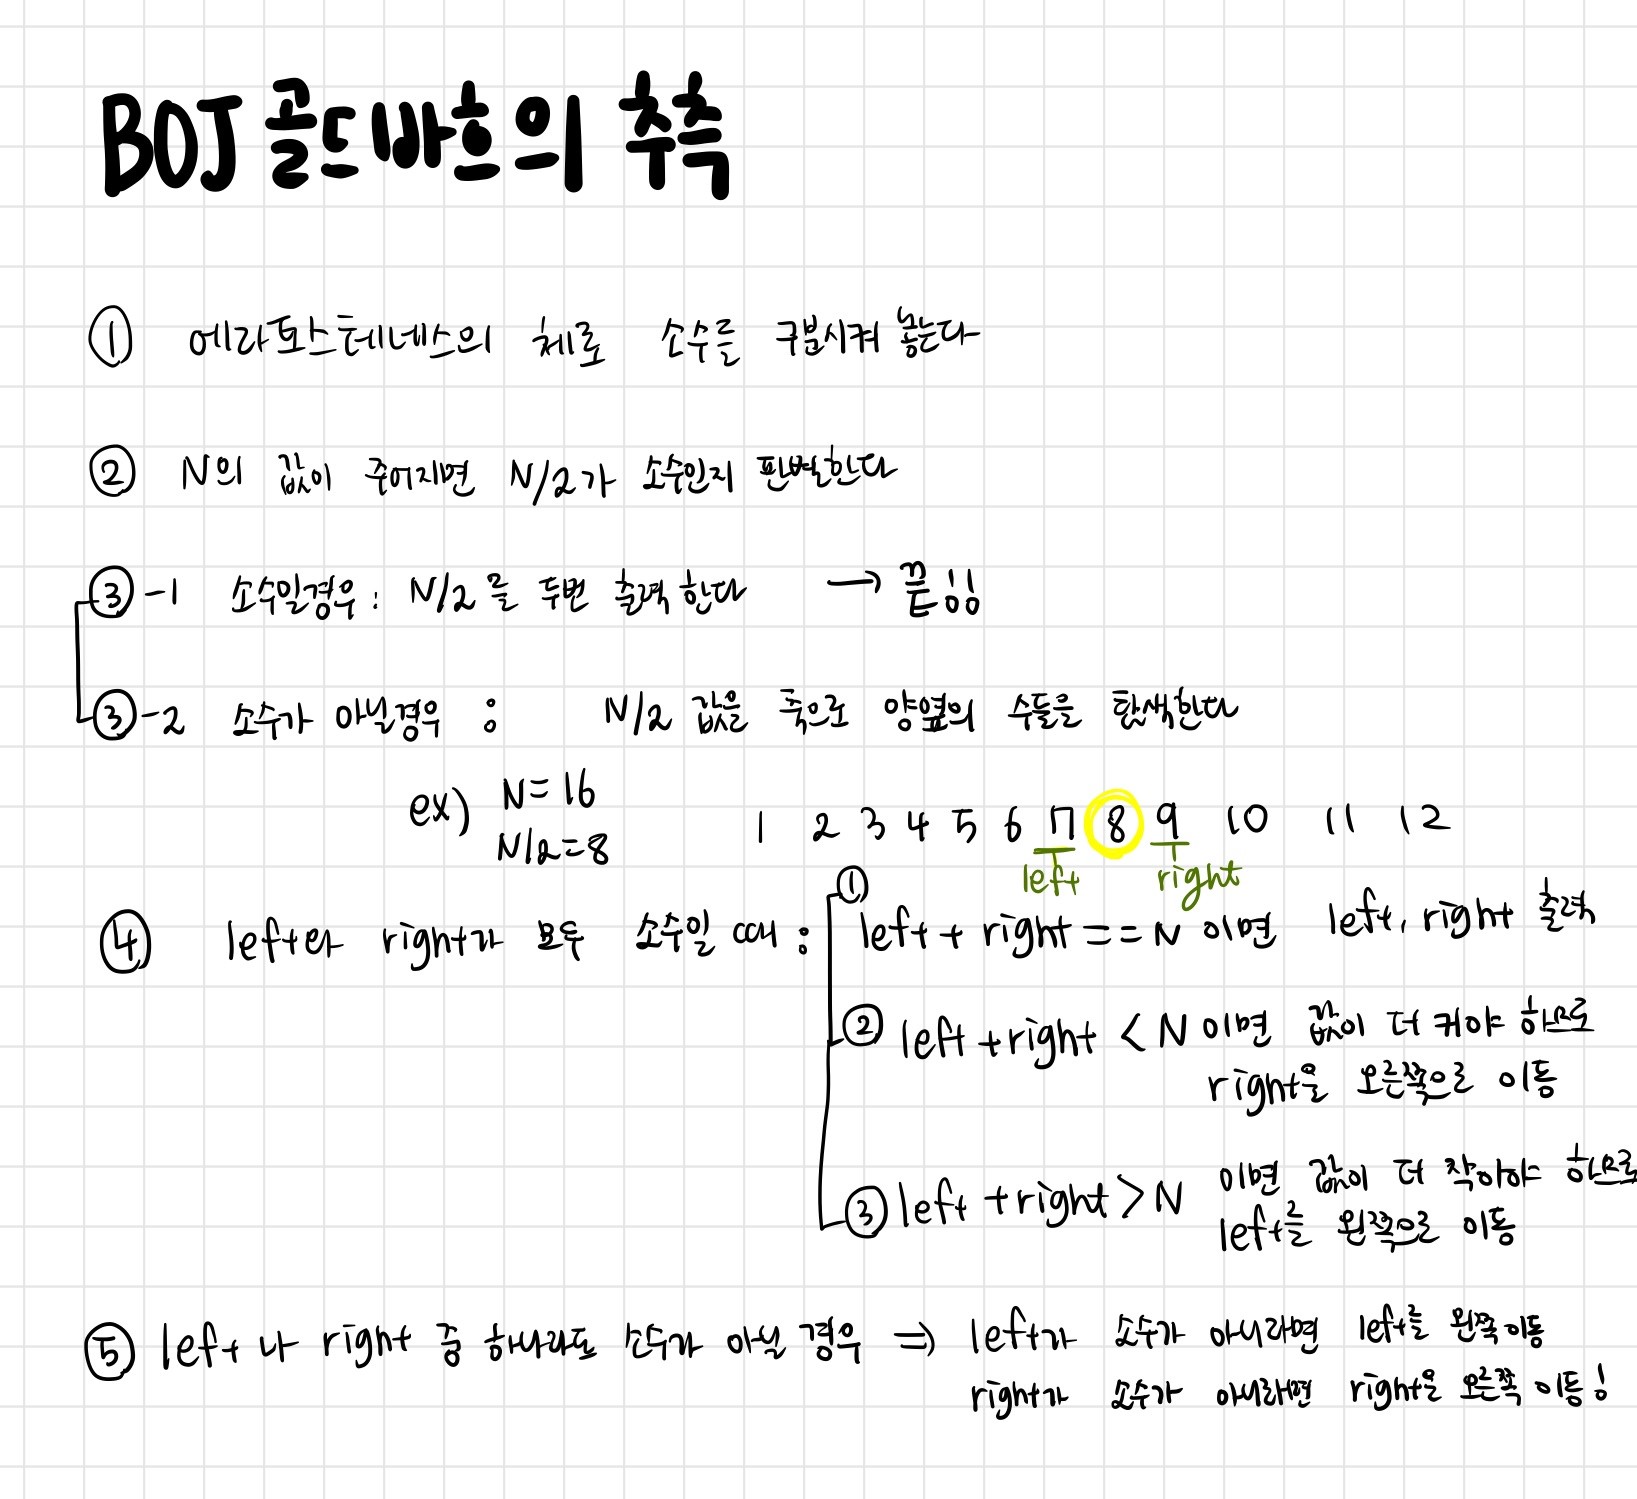 BOJ 골드바흐의 추측
① 에라토스테네스의 체로 소수를 구분시켜 놓는다
② N의 값이 주어지면 N/2가 소수인지 판별한다
③-1 소수일경우: N/2를 두번 출력한다 → 끝!!
③-2 소수가 아닐경우 : N/2 값을 축으로 양옆의 수들을 탐색한다
ex) N=16
N/2=8
1 2 3 4 5 6 7 8 9 10 11 12
left right
④ left와 right가 모두 소수일 때 : ① left + right == N 이면 left, right 출력
② left + right < N 이면 값이 더 커야 하므로
right을 오른쪽으로 이동
③ left + right > N 이면 값이 더 작아야 하므로
left를 왼쪽으로 이동
⑤ left 나 right 중 하나라도 소수가 아닐 경우 ⇒ left가 소수가 아니라면 left를 왼쪽이동
right가 소수가 아니라면 right을 오른쪽 이동!